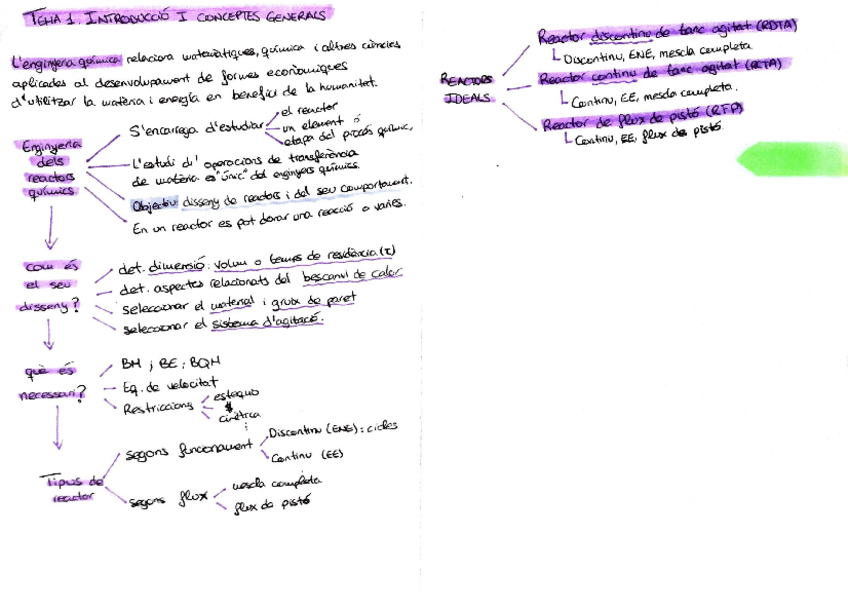 TEMA 1. INTRODUCCIÓ I CONCEPTES GENERALS
L'enginyeria química relaciona matemàtiques, química i altres ciències
aplicades al desenvolupament de formes econòmiques
d'utilitzar la matèria i energia en benefici de la humanitat.
Enginyeria
dels
reactors
químics
S'encarrega d'estudiar
el reactor
un element o
etapa del procés químic,
L'estudi d' operacions de transferència
de matèria es "únic" del enginyers químics.
Objectiu disseny de reactors i del seu comportament.
En un reactor es pot donar una reacció o varies.
Com és
el seu
disseny?
det. dimensió: volum o temps de residència (τ)
det. aspectes relacionats del bescanvi de calor
seleccionar el material i gruix de paret
seleccionar el sistema d'agitació.
què és
necessari?
BM ; BE ; BQM
Eq. de velocitat
Restriccions
estequio
cinètica
Tipus de
reactor
segons funcionament
Discontinu (ENE): cicles
Continu (EE)
segons flux
mescla completa
flux de pistó
REACTORS
IDEALS
Reactor discontinu de tanc agitat (RDTA)
Discontinu, ENE, mescla completa
Reactor continu de tanc agitat (RCTA)
Continu, EE, mescla completa.
Reactor de flux de pistó (RFP)
Continu, EE, flux de pistó.